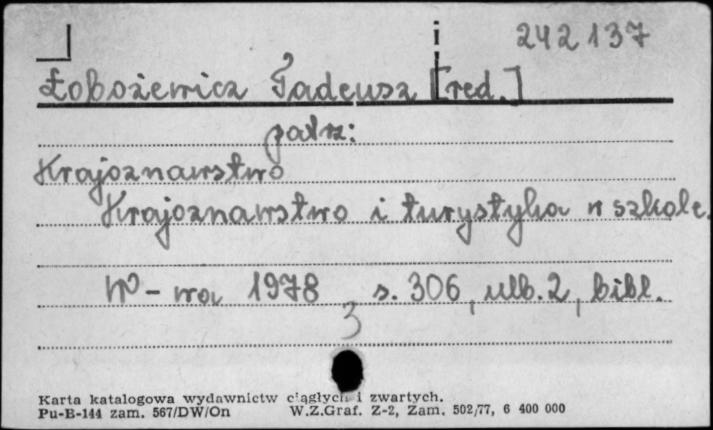 242137
Łobożewicz Tadeusz [red.]
patrz:
Krajoznawstwo
Krajoznawstwo i turystyka w szkole.
W-wa 1978 s. 306, ulb. 2, bibl.
3
Karta katalogowa wydawnictw ciągłych i zwartych.
Pu-B-144 zam. 567/DW/On W.Z.Graf. Z-2, Zam. 502/77, 6 400 000